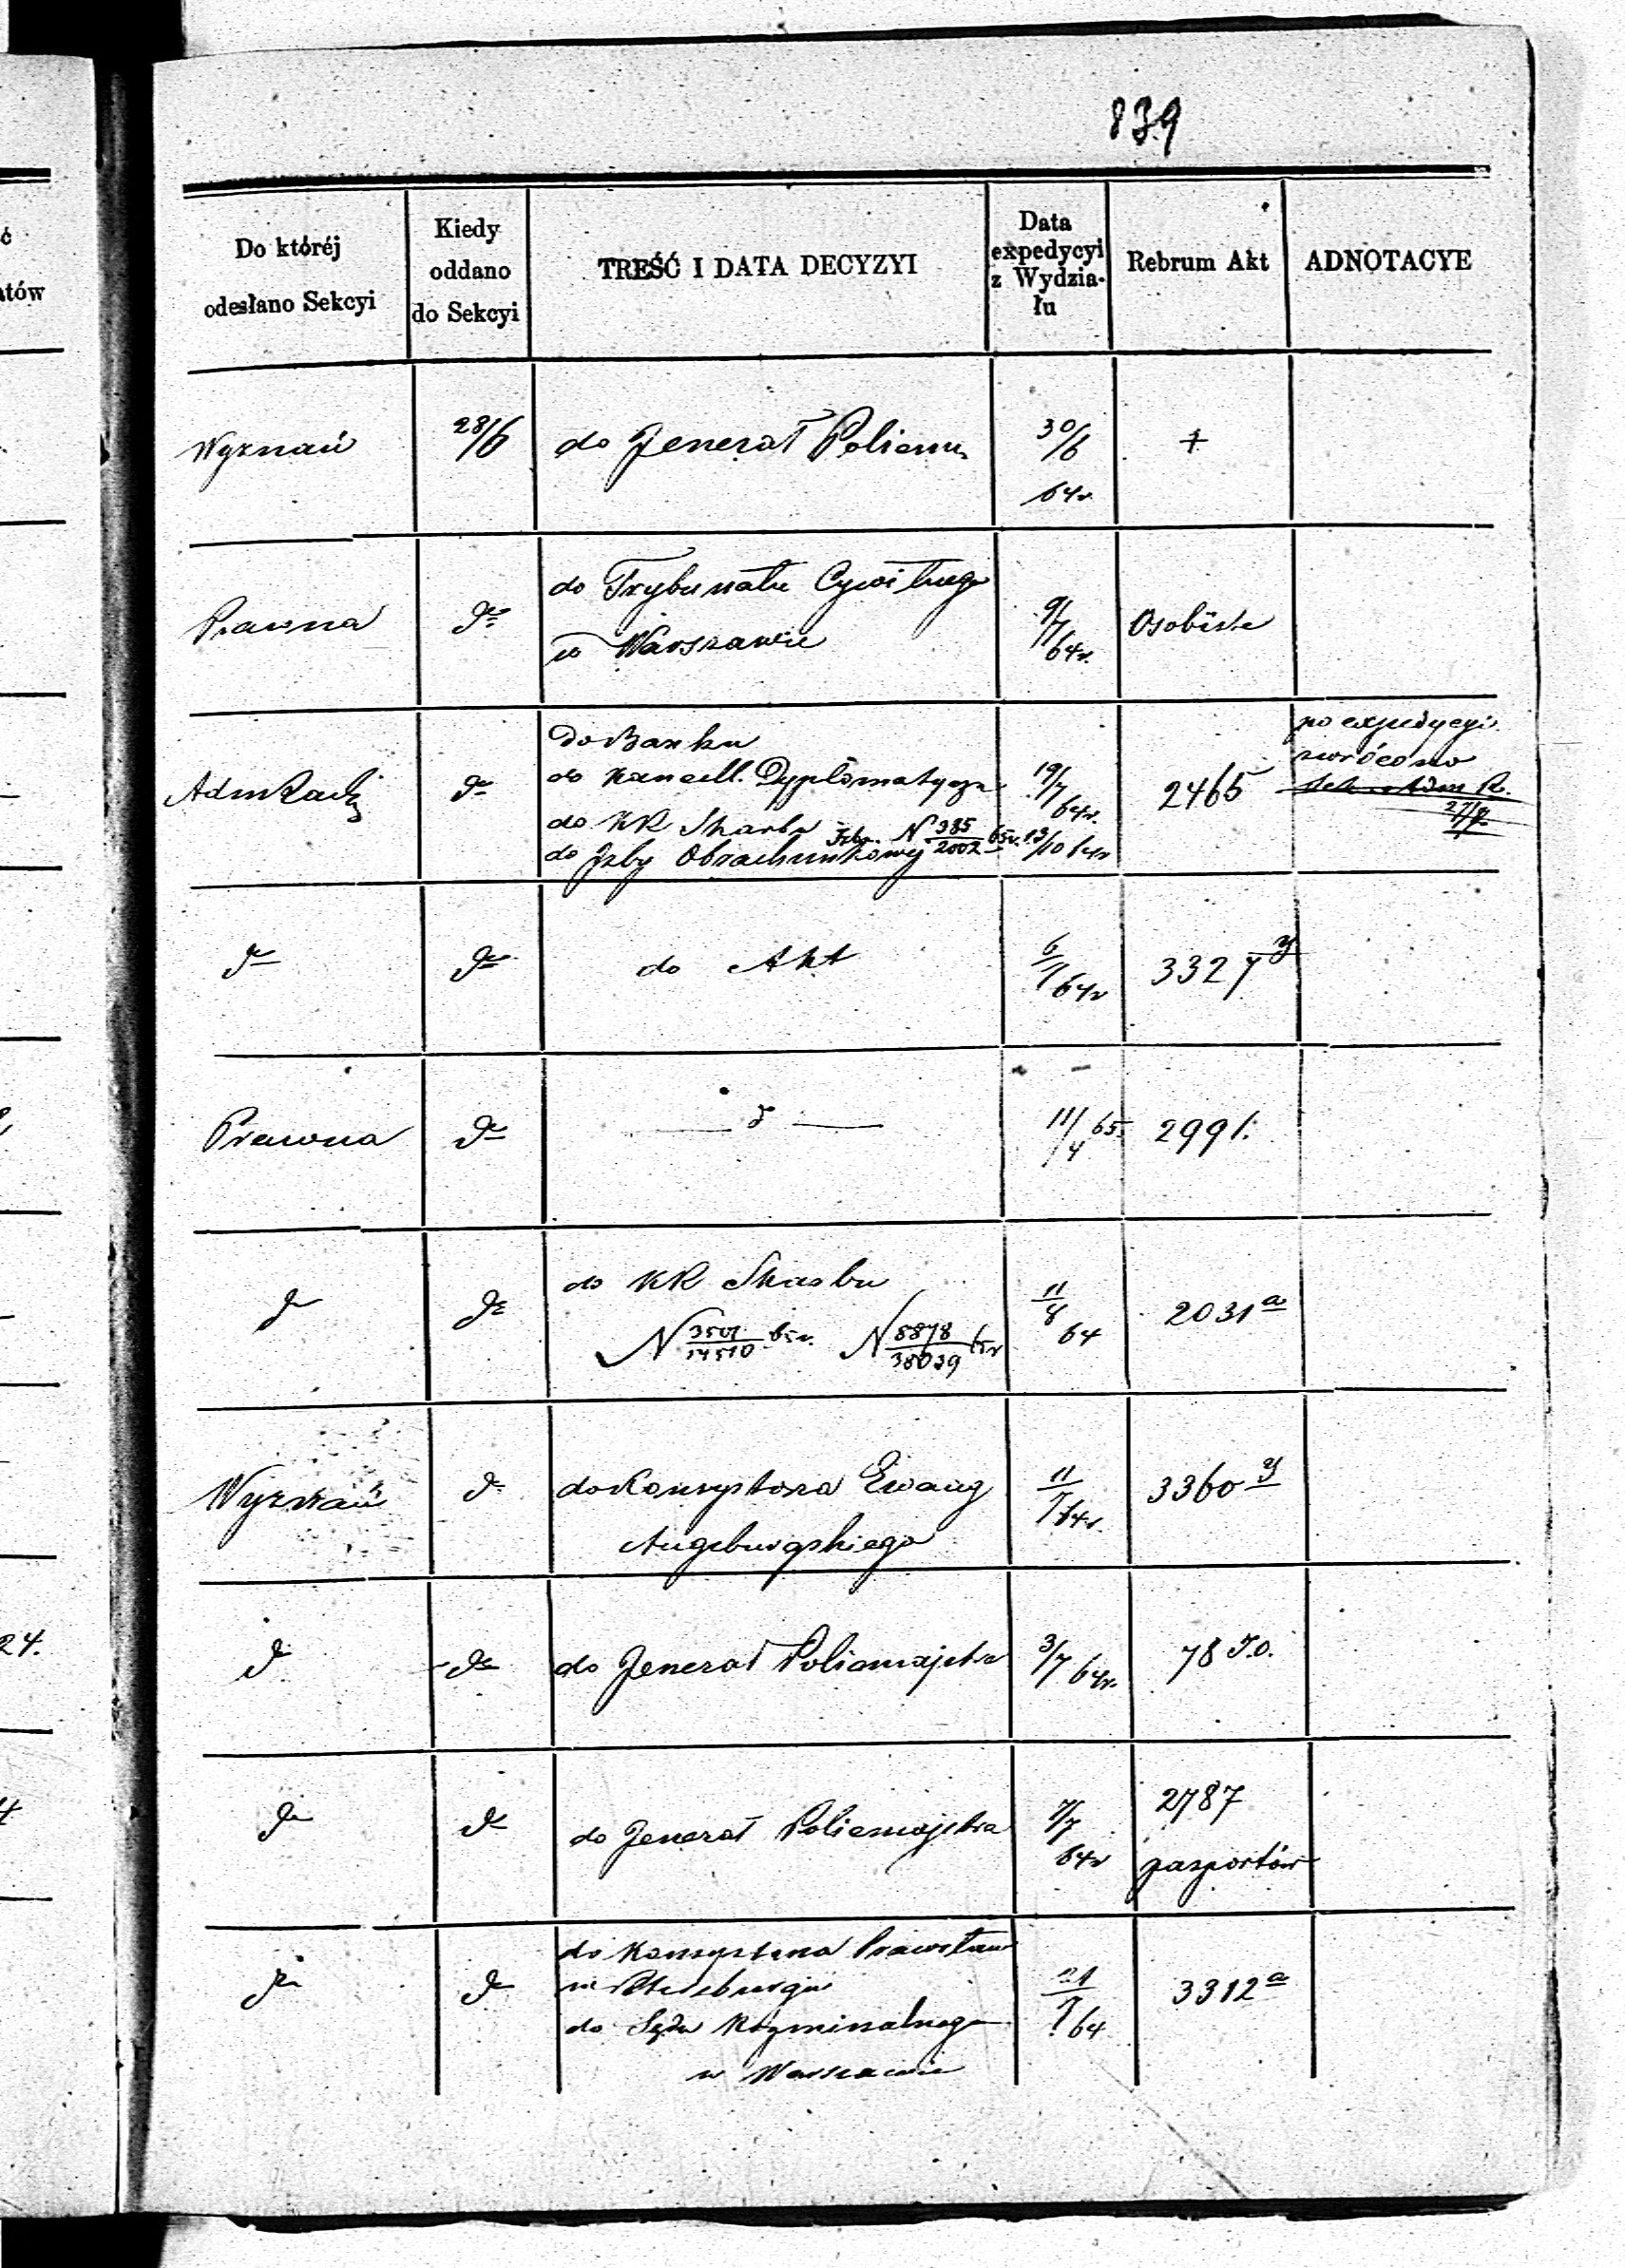 839
Do któréj odesłano Sekcyi
Kiedy oddano do Sekcyi
TREŚĆ I DATA DECYZYI
Data expedycyi z Wydzia-łu
Rebrum Akt
ADNOTACYE
Wyznań 28/6 do Jenerał Policm 30/6 64r. +
Prawna do Trybunału Cywilnego 9/7 64r. Osobiste
w Warszawie
do Banku
po expedycyi
Adm Rach do Kancell. Dyplomatyczn 19/7 64r. 2465 zwrócono
do KR Skarbu N 385/2002 65r. Sek. Adm R.
do Izby Obrachunkowej 13/10 64r 27/9
do do do Akt 6/7 64r 3327 y
Prawna do d 11/4 65. 2991.
do do do KR Skarbu 11/8 64 2031 a
N 65r. N 8878/38029 65r
Wyznań do do Konsystorza Ewang 11/7 64r. 3360 y
Augsburgskiego
do do do Jenerał Policmajstra 3/7 64r. 78 T.O.
do do do Jenerał Policmajstra 7/7 64r 2787
paszportów
do Konsystorza Prawosław
w Petersburgu
do do do Sądu Kryminalnego 21/7 64 3312 a
w Warszawie
ć
atów
24.